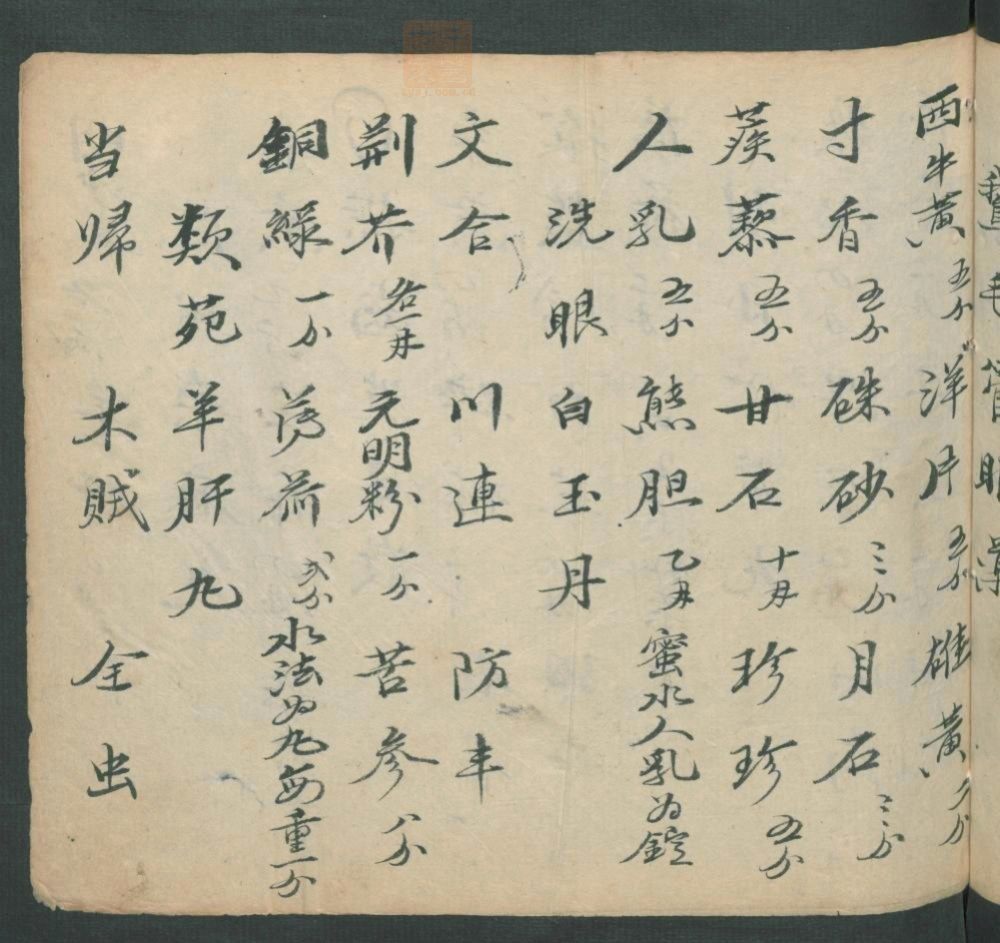 西牛黃五分 洋片五分 雄黃六分
寸香五分 硃砂三分 月石三分
蒺藜五分 甘石十月 珍珍五分
人乳五分 熊胆乙月 蜜水人乳为錠
洗眼白玉丹
文合 川連 防丰
荆芥各二月 元明粉一分 苦参八分
銅綠一分 薄荷弍分 水法为丸每重一分
類苑羊肝丸
当帰 木賊 全虫